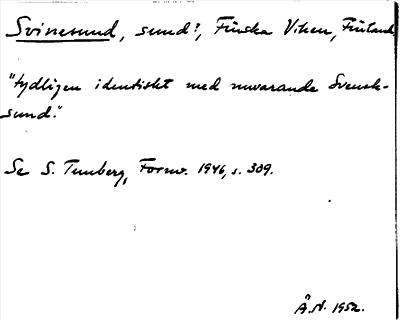 Svinesund, sund?, Finska Viken, Finland
"tydligen identiskt med nuvarande Svensk-
sund."
Se S. Tunberg, Fornv. 1946, s. 309.
Å.St. 1952.